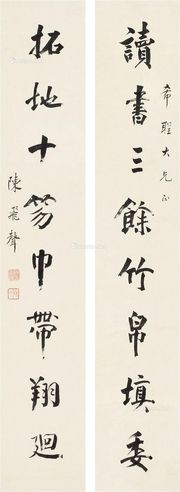 希聖大兄正
讀書三餘竹帛填委
拓地十笏巾帶翔廻
陳飛聲